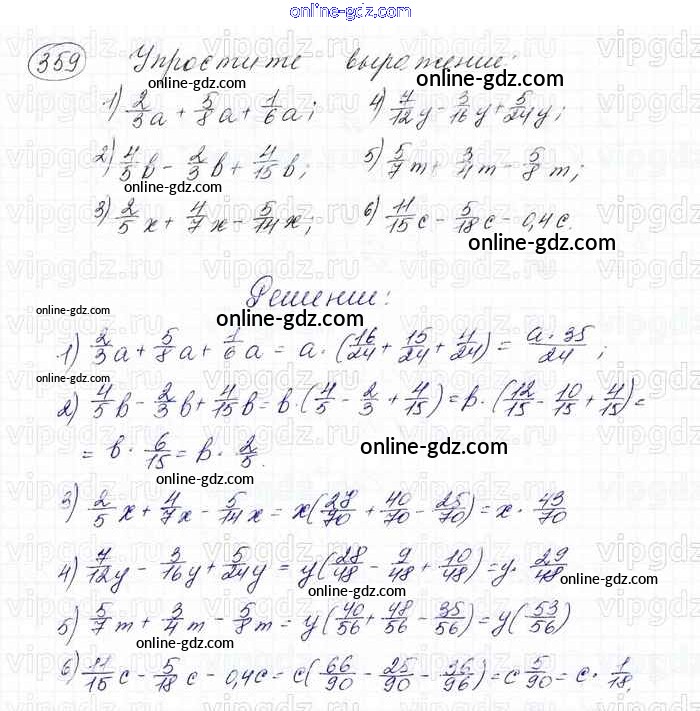 online-gdz.com
359 Упростите выражение:
online-gdz.com
1) 2/3 a + 5/8 a + 1/6 a; 4) 7/12 y - 3/16 y + 5/24 y;
online-gdz.com online-gdz.com
2) 4/5 b - 2/3 b + 4/15 b; 5) 5/7 m + 3/4 m - 5/8 m;
online-gdz.com online-gdz.com
3) 2/5 x + 4/7 x - 5/14 x; 6) 11/15 c - 5/18 c - 0,4c.
online-gdz.com
Решение:
online-gdz.com online-gdz.com
1) 2/3 a + 5/8 a + 1/6 a = a · (16/24 + 15/24 + 4/24) = a · 35/24;
online-gdz.com
2) 4/5 b - 2/3 b + 4/15 b = b · (4/5 - 2/3 + 4/15) = b · (12/15 - 10/15 + 4/15) =
= b · 6/15 = b · 2/5.
online-gdz.com
online-gdz.com
3) 2/5 x + 4/7 x - 5/14 x = x(28/70 + 40/70 - 25/70) = x · 43/70
online-gdz.com
4) 7/12 y - 3/16 y + 5/24 y = y(28/48 - 9/48 + 10/48) = y · 29/48
online-gdz.com
5) 5/7 m + 3/4 m - 5/8 m = y(40/56 + 48/56 - 35/56) = y(53/56)
online-gdz.com
6) 11/15 c - 5/18 c - 0,4c = c(66/90 - 25/90 - 36/96) = c 5/90 = c · 1/18.
online-gdz.com